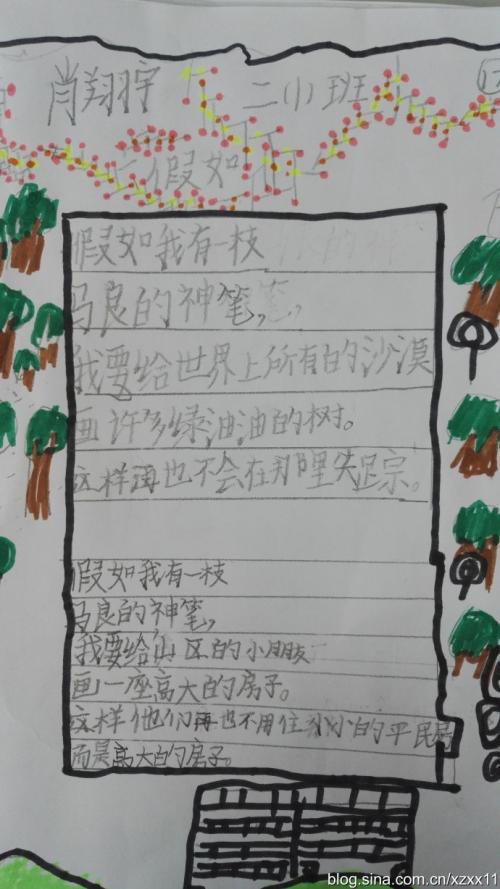 肖翔宇 二(1)班
假如
假如我有一枝
马良的神笔,
我要给世界上所有的沙漠
画许多绿油油的树。
这样再也不会在那里失踪。
假如我有一枝
马良的神笔,
我要给山区的小朋友
画一座高大的房子。
这样他们再也不用住小小的平民房
而是高大的房子。
blog.sina.com.cn/xzxx11